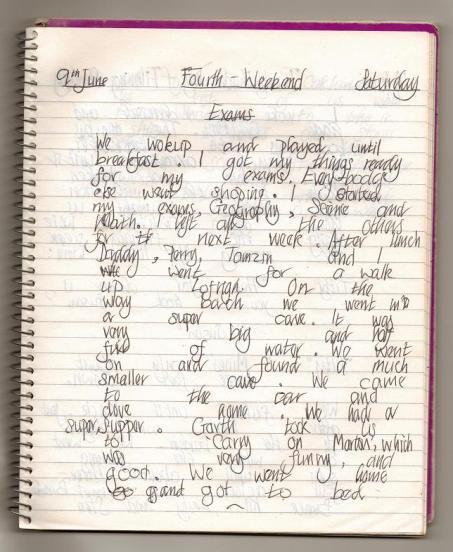 9th June Fourth - Weekend Saturday
Exams
We wokeup and played until
breakfast. I got my things ready
for my exams. Everybodee
else went shoping. I started
my exams, Geography, Sciene and
Math. left all the others
for next week. After lunch
Daddy, Perry, Tamzin and I
went for a walk
up On the
way back we went into
a super cave. It was
very big and half
full of water. We went
on and found a much
smaller cave. We came
to the car and
drive home. We had a
super suppar. Garth took us
to Carry on Martan, which
was very funny, and
good. We went home
and got to bed